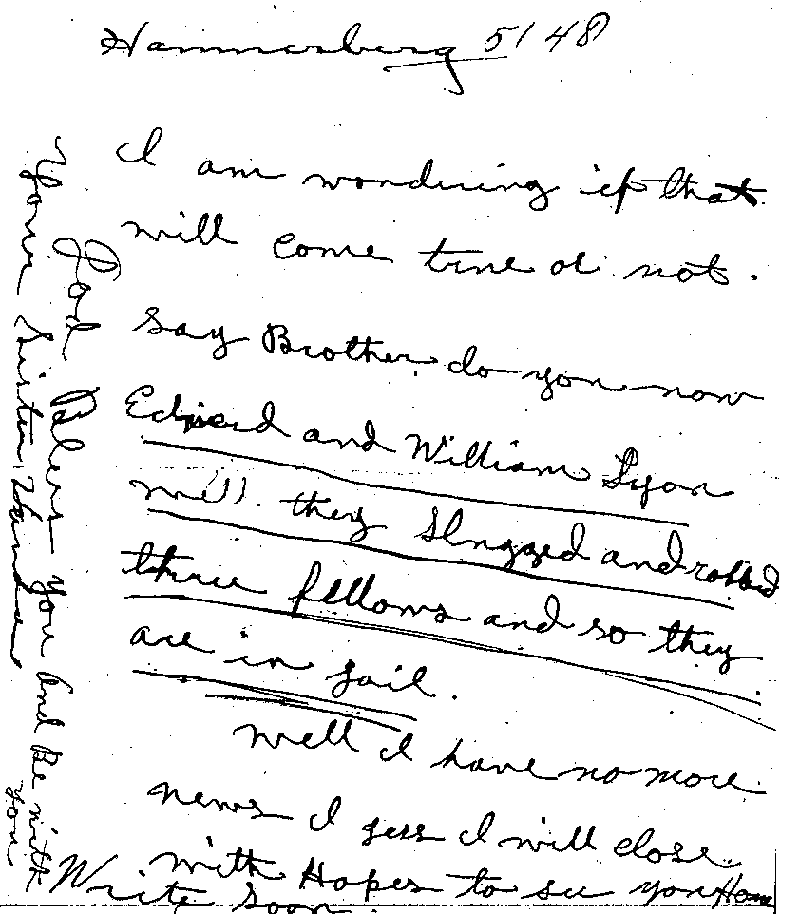 Hammerberg 5148
I am wondering if that
will come true or not.
Say Brother do you now
Edward and William Lyon
will they slugged and robbed
three fellows and so they
are in jail.
well I have no more
news I gess I will close
with Hopes to see you Home
Write soon.
God Bless you and Be with you
Your Sister